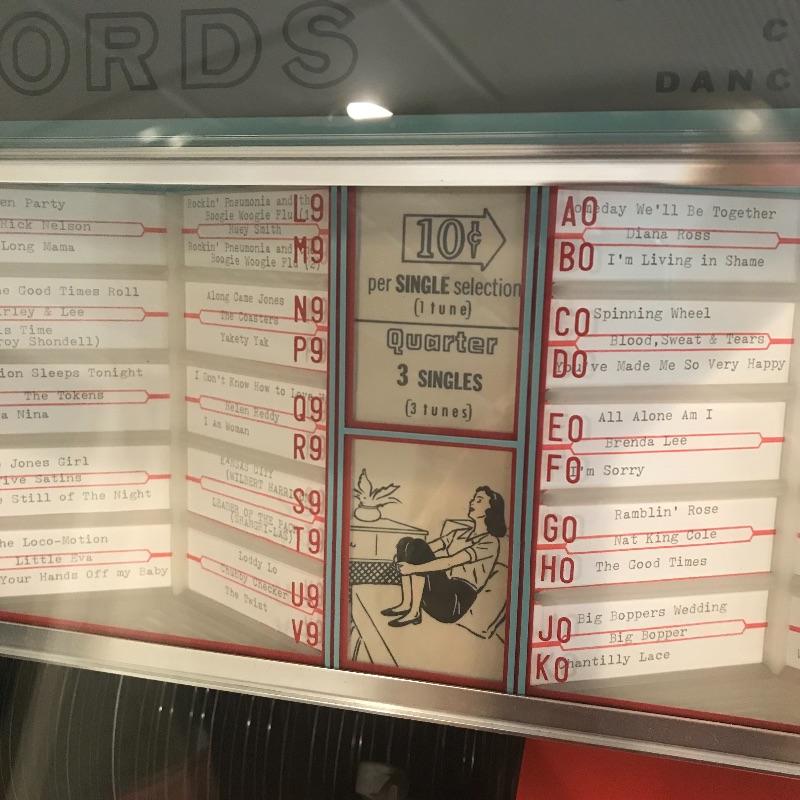 ORDS
C
DANC
en Party
Rick Nelson
Long Mama
e Good Times Roll
irley & Lee
is Time
roy Shondell)
ion Sleeps Tonight
The Tokens
a Nina
Jones Girl
Five Satins
Still of The Night
he Loco-Motion
Little Eva
Your Hands Off my Baby
L9
Rockin' Pneumonia and th
Boogie Woogie Flu (1)
Huey Smith
M9
Rockin' Pneumonia and
Boogie Woogie Flu (2)
N9
Along Came Jones
The Coasters
P9
Yakety Yak
Q9
I Don't Know How to Love
Helen Reddy
R9
I Am Woman
S9
KANSAS CITY
(WILBERT HARRI
T9
LEADER OF THE PACK
(SHANGRI-LAS)
U9
Loddy Lo
Chubby Checker
V9
The Twist
10¢
per SINGLE selection
(1 tune)
Quarter
3 SINGLES
(3 tunes)
A0
omeday We'll Be Together
Diana Ross
B0
I'm Living in Shame
C0
Spinning Wheel
Blood,Sweat & Tears
D0
You've Made Me So Very Happy
E0
All Alone Am I
Brenda Lee
F0
I'm Sorry
G0
Ramblin' Rose
Nat King Cole
H0
The Good Times
J0
Big Boppers Wedding
Big Bopper
K0
Chantilly Lace